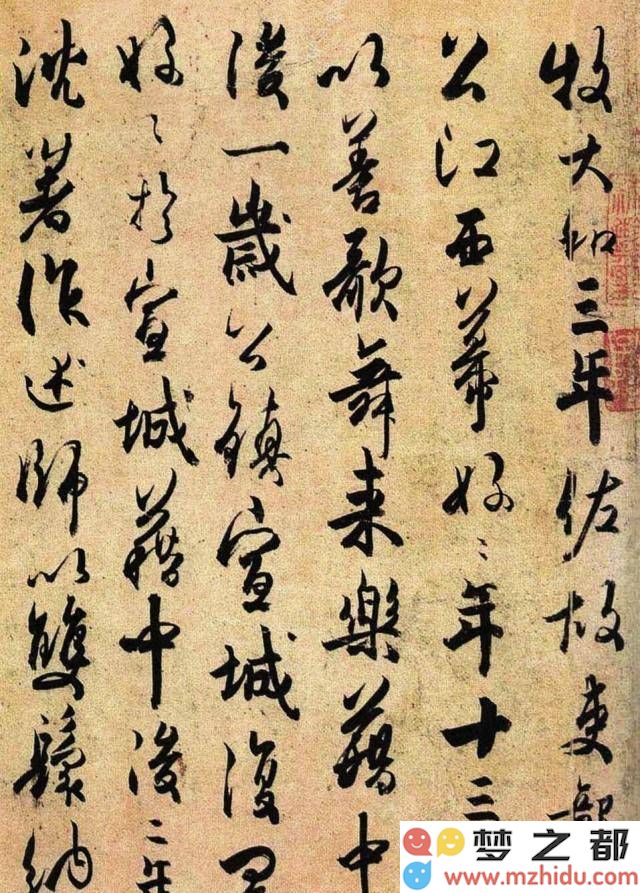 牧大和三年佐故吏部
公江西幕好〻年十三
以善歌舞來樂籍中
後一歲公鎮宣城復
好〻於宣城籍中後二年
沈著作述師以雙鬟納
梦之都
www.mzhidu.com